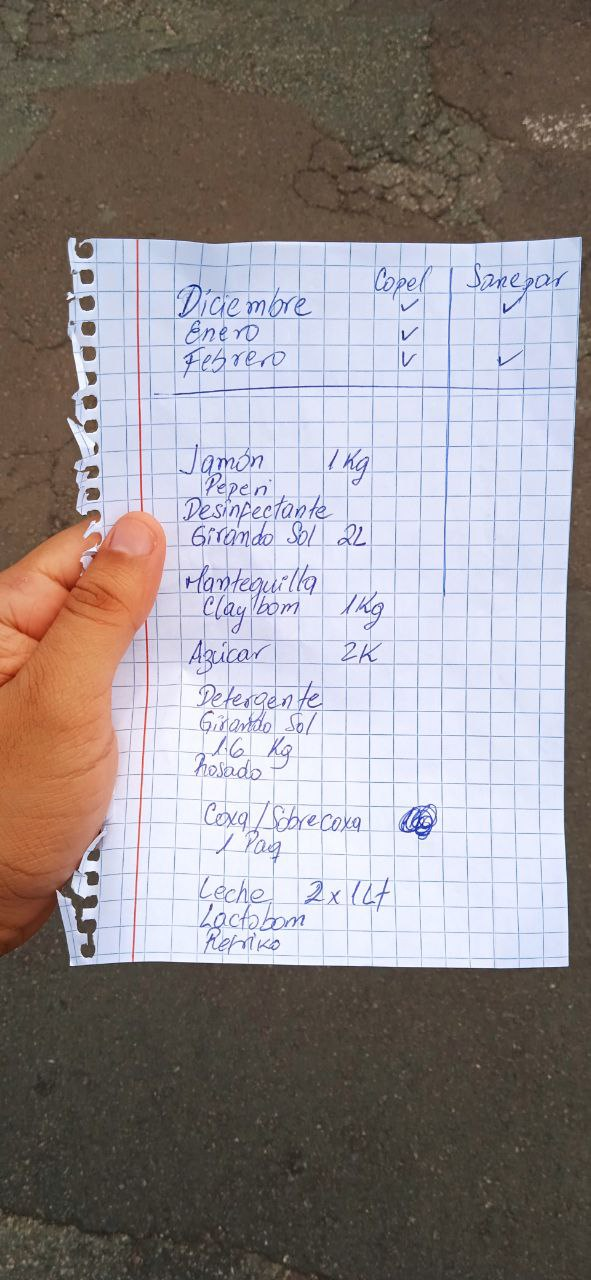 Copel Sanepar
Diciembre ✓ ✓
Enero ✓
Febrero ✓ ✓
Jamón 1 Kg
Peperi
Desinfectante
Girando Sol 2L
Mantequilla
Claybom 1Kg
Azúcar 2K
Detergente
Girando Sol
1.6 Kg
Rosado
Coxa/Sobrecoxa
1 Paq
Leche 2x1Lt
Lactobom